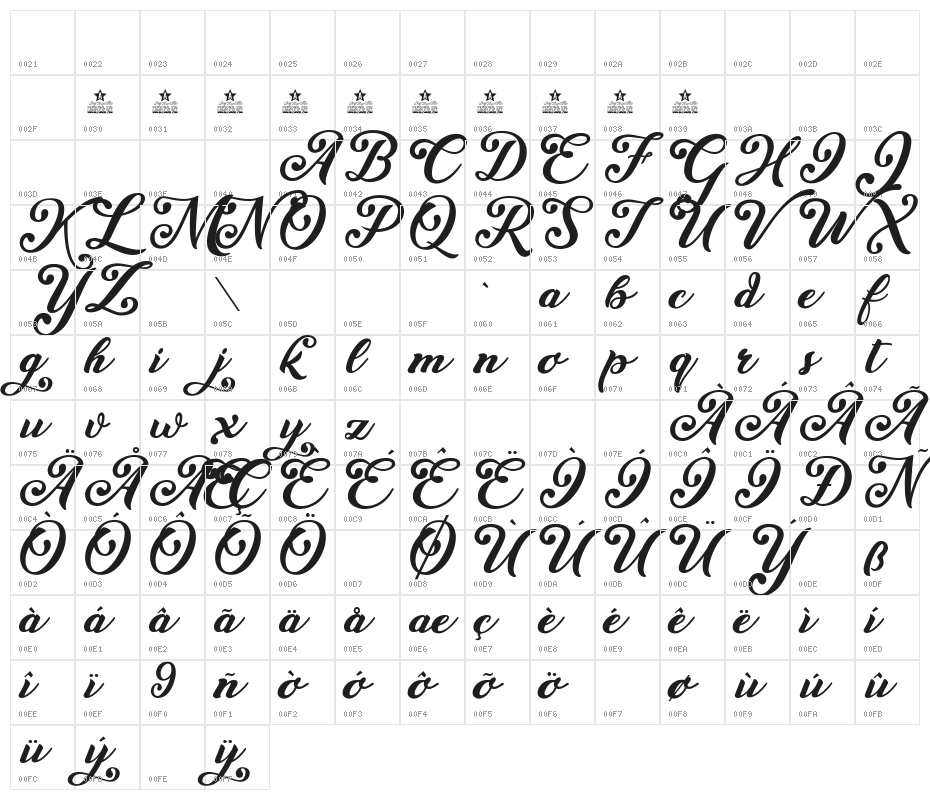 0021 0022 0023 0024 0025 0026 0027 0028 0029 002A 002B 002C 002D 002E
002F 0030 0031 0032 0033 0034 0035 0036 0037 0038 0039 003A 003B 003C
A B C D E F G H I J
003D 003E 003F 0040 0041 0042 0043 0044 0045 0046 0047 0048 0049 004A
K L M N O P Q R S T U V W X
004B 004C 004D 004E 004F 0050 0051 0052 0053 0054 0055 0056 0057 0058
Y Z \ ` a b c d e f
0059 005A 005B 005C 005D 005E 005F 0060 0061 0062 0063 0064 0065 0066
g h i j k l m n o p q r s t
0067 0068 0069 006A 006B 006C 006D 006E 006F 0070 0071 0072 0073 0074
u v w x y z À Á Â Ã
0075 0076 0077 0078 0079 007A 007B 007C 007D 007E 00C0 00C1 00C2 00C3
Ä Å Æ Ç È É Ê Ë Ì Í Î Ï Ð Ñ
00C4 00C5 00C6 00C7 00C8 00C9 00CA 00CB 00CC 00CD 00CE 00CF 00D0 00D1
Ò Ó Ô Õ Ö Ø Ù Ú Û Ü Ý ß
00D2 00D3 00D4 00D5 00D6 00D7 00D8 00D9 00DA 00DB 00DC 00DD 00DE 00DF
à á â ã ä å æ ç è é ê ë ì í
00E0 00E1 00E2 00E3 00E4 00E5 00E6 00E7 00E8 00E9 00EA 00EB 00EC 00ED
î ï 9 ñ ò ó ô õ ö ø ù ú û
00EE 00EF 00F0 00F1 00F2 00F3 00F4 00F5 00F6 00F7 00F8 00F9 00FA 00FB
ü ý ÿ
00FC 00FD 00FE 00FF